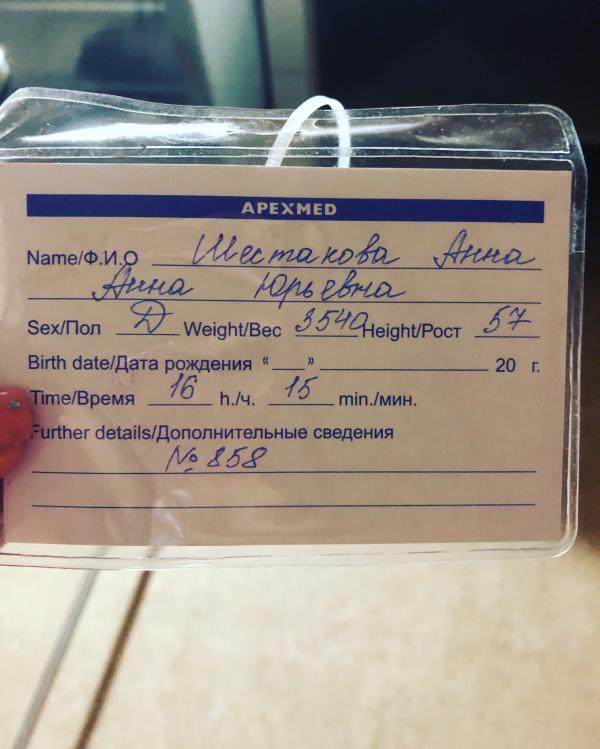 APEXMED
Name/Ф.И.О Шестакова Анна
Анна Юрьевна
Sex/Пол Д Weight/Вес 3540 Height/Рост 57
Birth date/Дата рождения “ ” 20 г.
Time/Время 16 h./ч. 15 min./мин.
Further details/Дополнительные сведения
№ 858